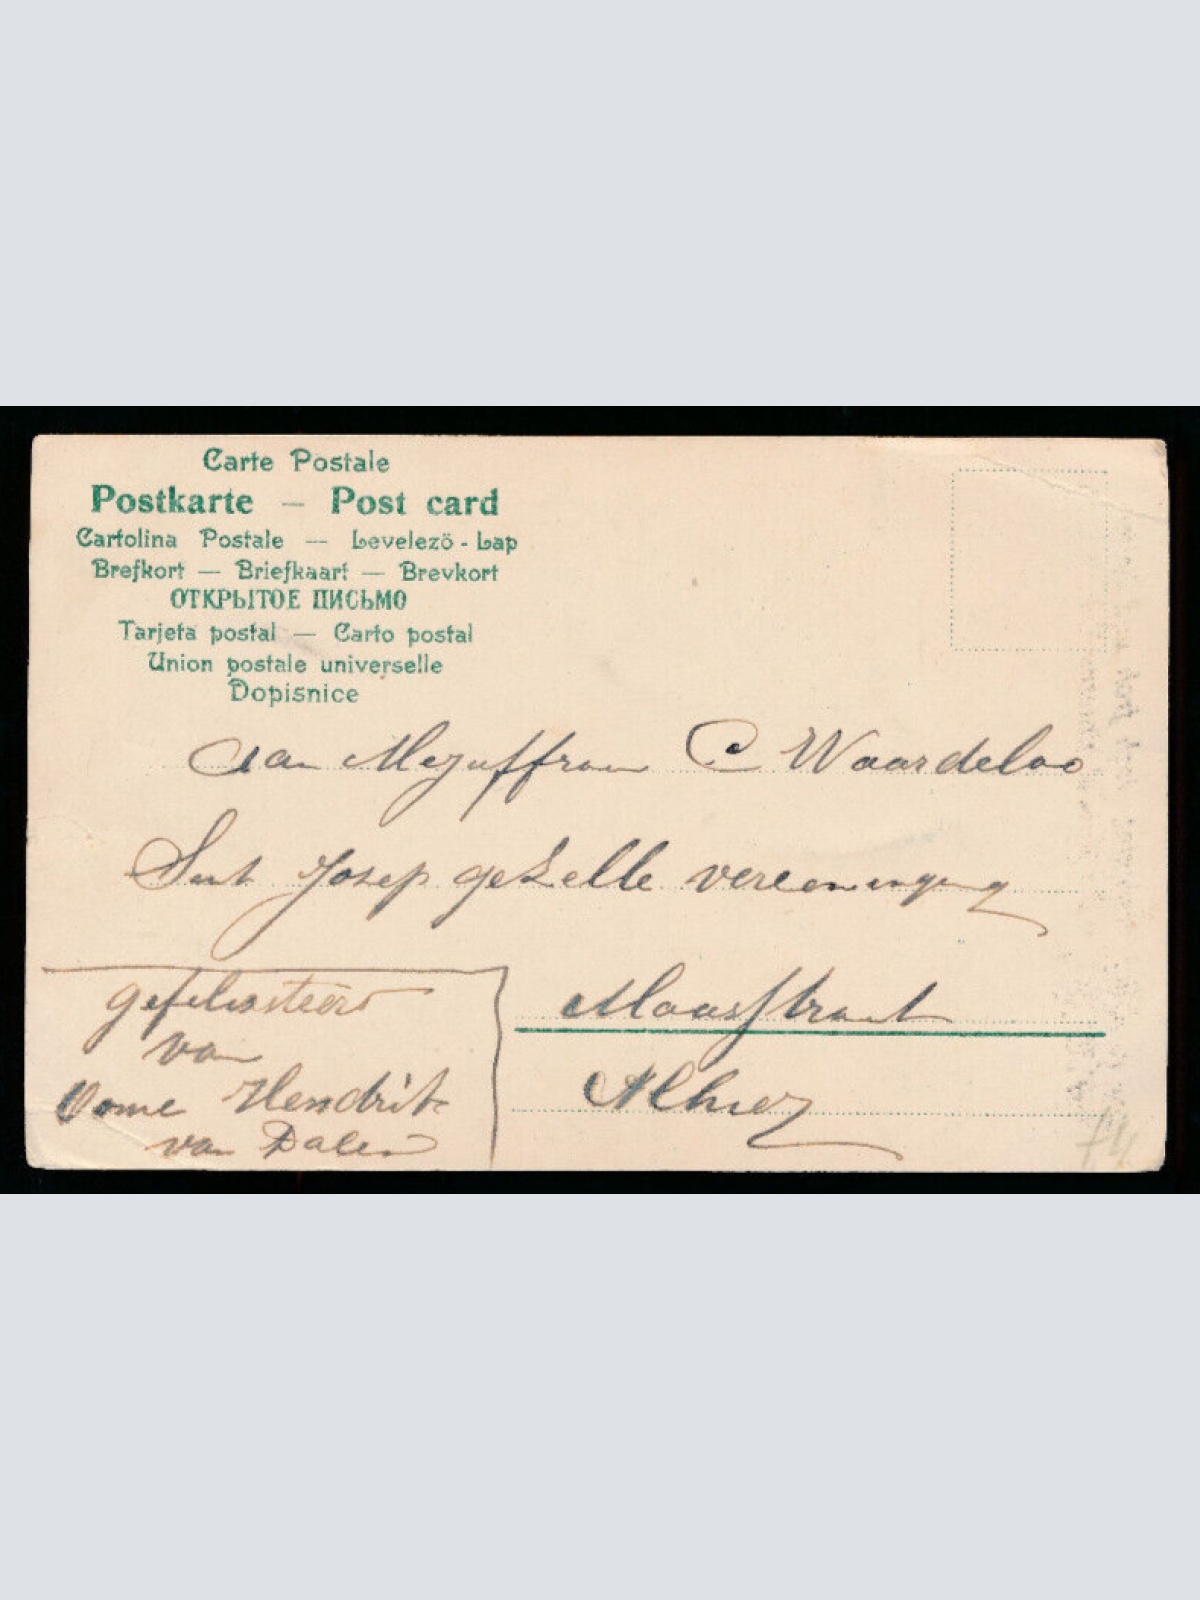 Carte Postale
Postkarte — Post card
Cartolina Postale — Levelezö-Lap
Brefkort — Briefkaart — Brevkort
ОТКРЫТОЕ ПИСЬМО
Tarjeta postal — Carto postal
Union postale universelle
Dopisnice
Aan Mejuffrau C Waardeloo
Sint Josep gezelle vereeniging
Maasstraat
Alhier
gefelisiteerd
van
Oome Hendrik
van Dalen